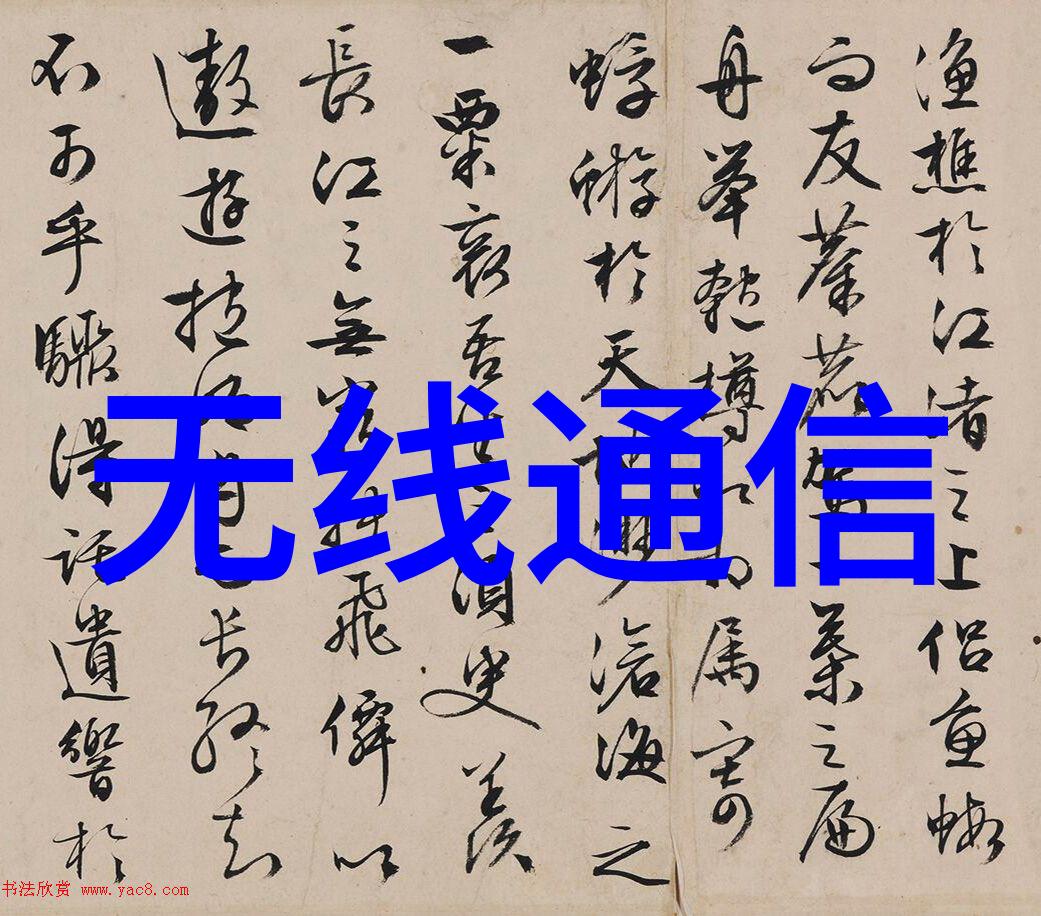 漁樵於江渚之上侣魚蝦
而友麋鹿駕一葉之扁
舟舉匏樽以相属寄
蜉蝣於天地渺滄海之
一粟哀吾生之須臾羡
長江之無窮挟飛僊以
遨遊抱明月而长終知
不可乎驟得託遺響於
无线通信
书法欣赏 www.yac8.com